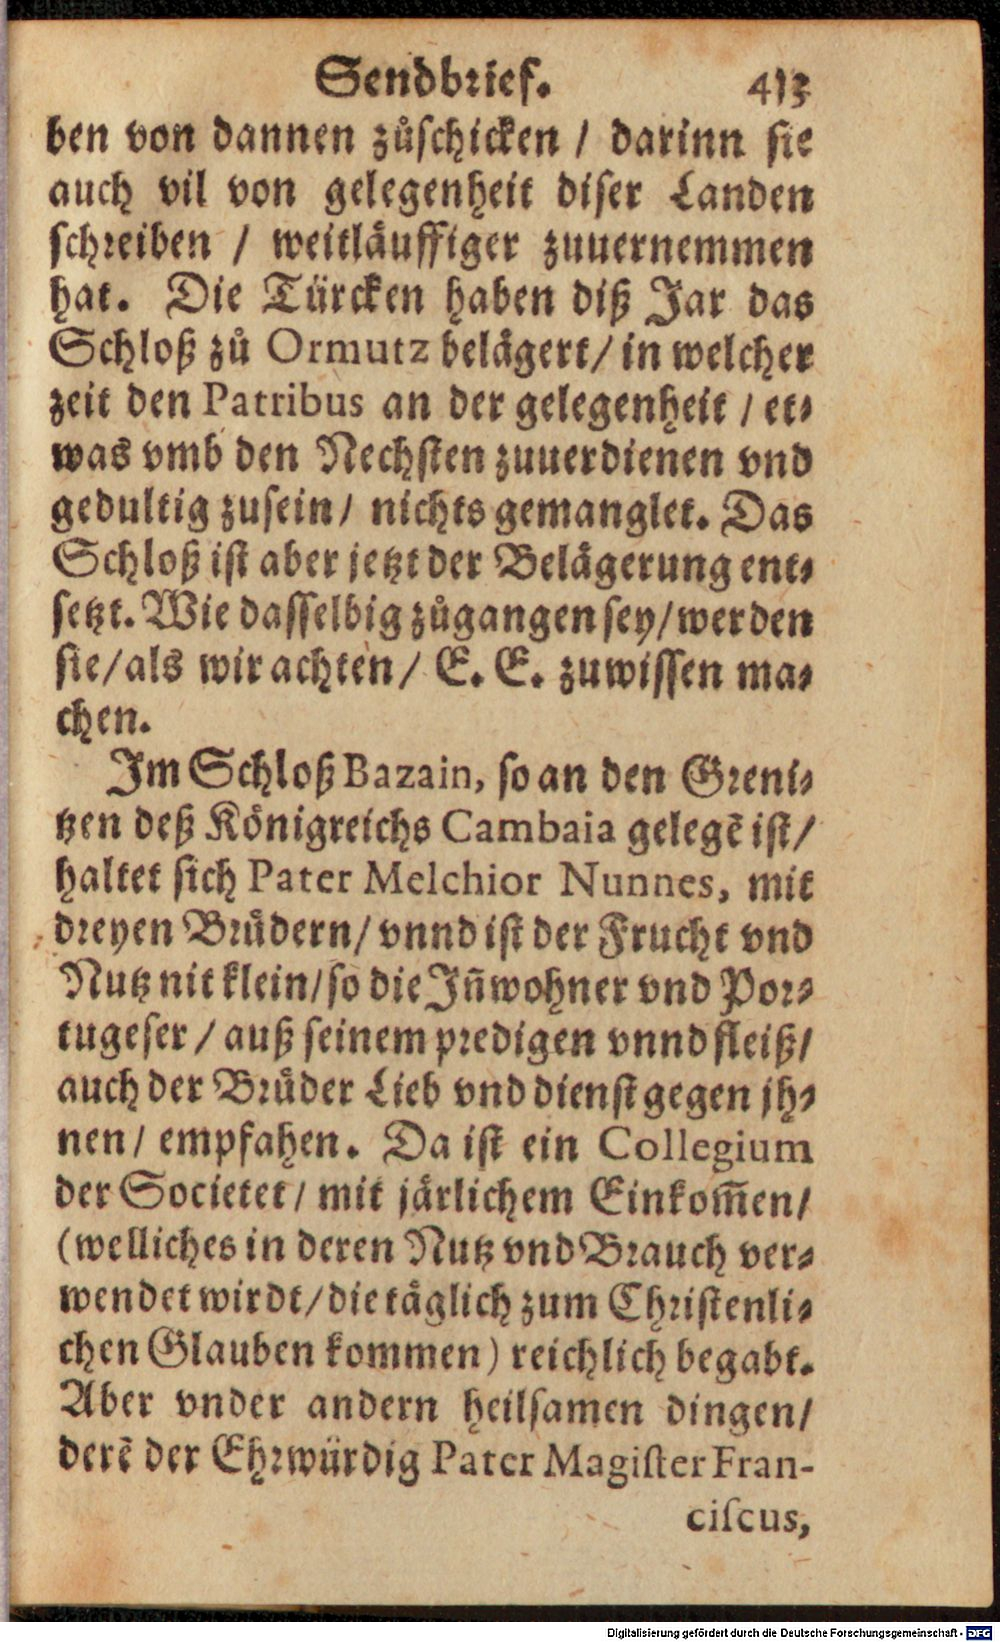 Sendbrief. 413
ben von dannen zůſchicken / darinn ſie
auch vil von gelegenheit diſer Landen
ſchreiben / weitläuffiger zuuernemmen
hat. Die Türcken haben diß Jar das
Schloß zů Ormutz belägert / in welcher
zeit den Patribus an der gelegenheit / et⸗
was vmb den Nechſten zuuerdienen vnd
gedultig zuſein / nichts gemanglet. Das
Schloß iſt aber jetzt der Belägerung ent⸗
ſetzt. Wie daſſelbig zůgangen ſey / werden
ſie / als wir achten / E. E. zuwiſſen ma⸗
chen.
Im Schloß Bazain, ſo an den Greni⸗
tzen deß Königreichs Cambaia gelegē iſt /
haltet ſich Pater Melchior Nunnes, mit
dreyen Brüdern / vnnd iſt der Frucht vnd
Nutz nit klein / ſo die Jn̄wohner vnd Por⸗
tugeſer / auß ſeinem predigen vnnd fleiß /
auch der Brüder Lieb vnd dienſt gegen jh⸗
nen / empfahen. Da iſt ein Collegium
der Societet / mit järlichem Einkom̄en /
(welliches in deren Nutz vnd Brauch ver⸗
wendet wirdt / die täglich zum Chriſtenli⸗
chen Glauben kommen) reichlich begabt.
Aber vnder andern heilſamen dingen /
derē der Ehrwürdig Pater Magiſter Fran-
ciſcus,
Digitalisierung gefördert durch die Deutsche Forschungsgemeinschaft - DFG